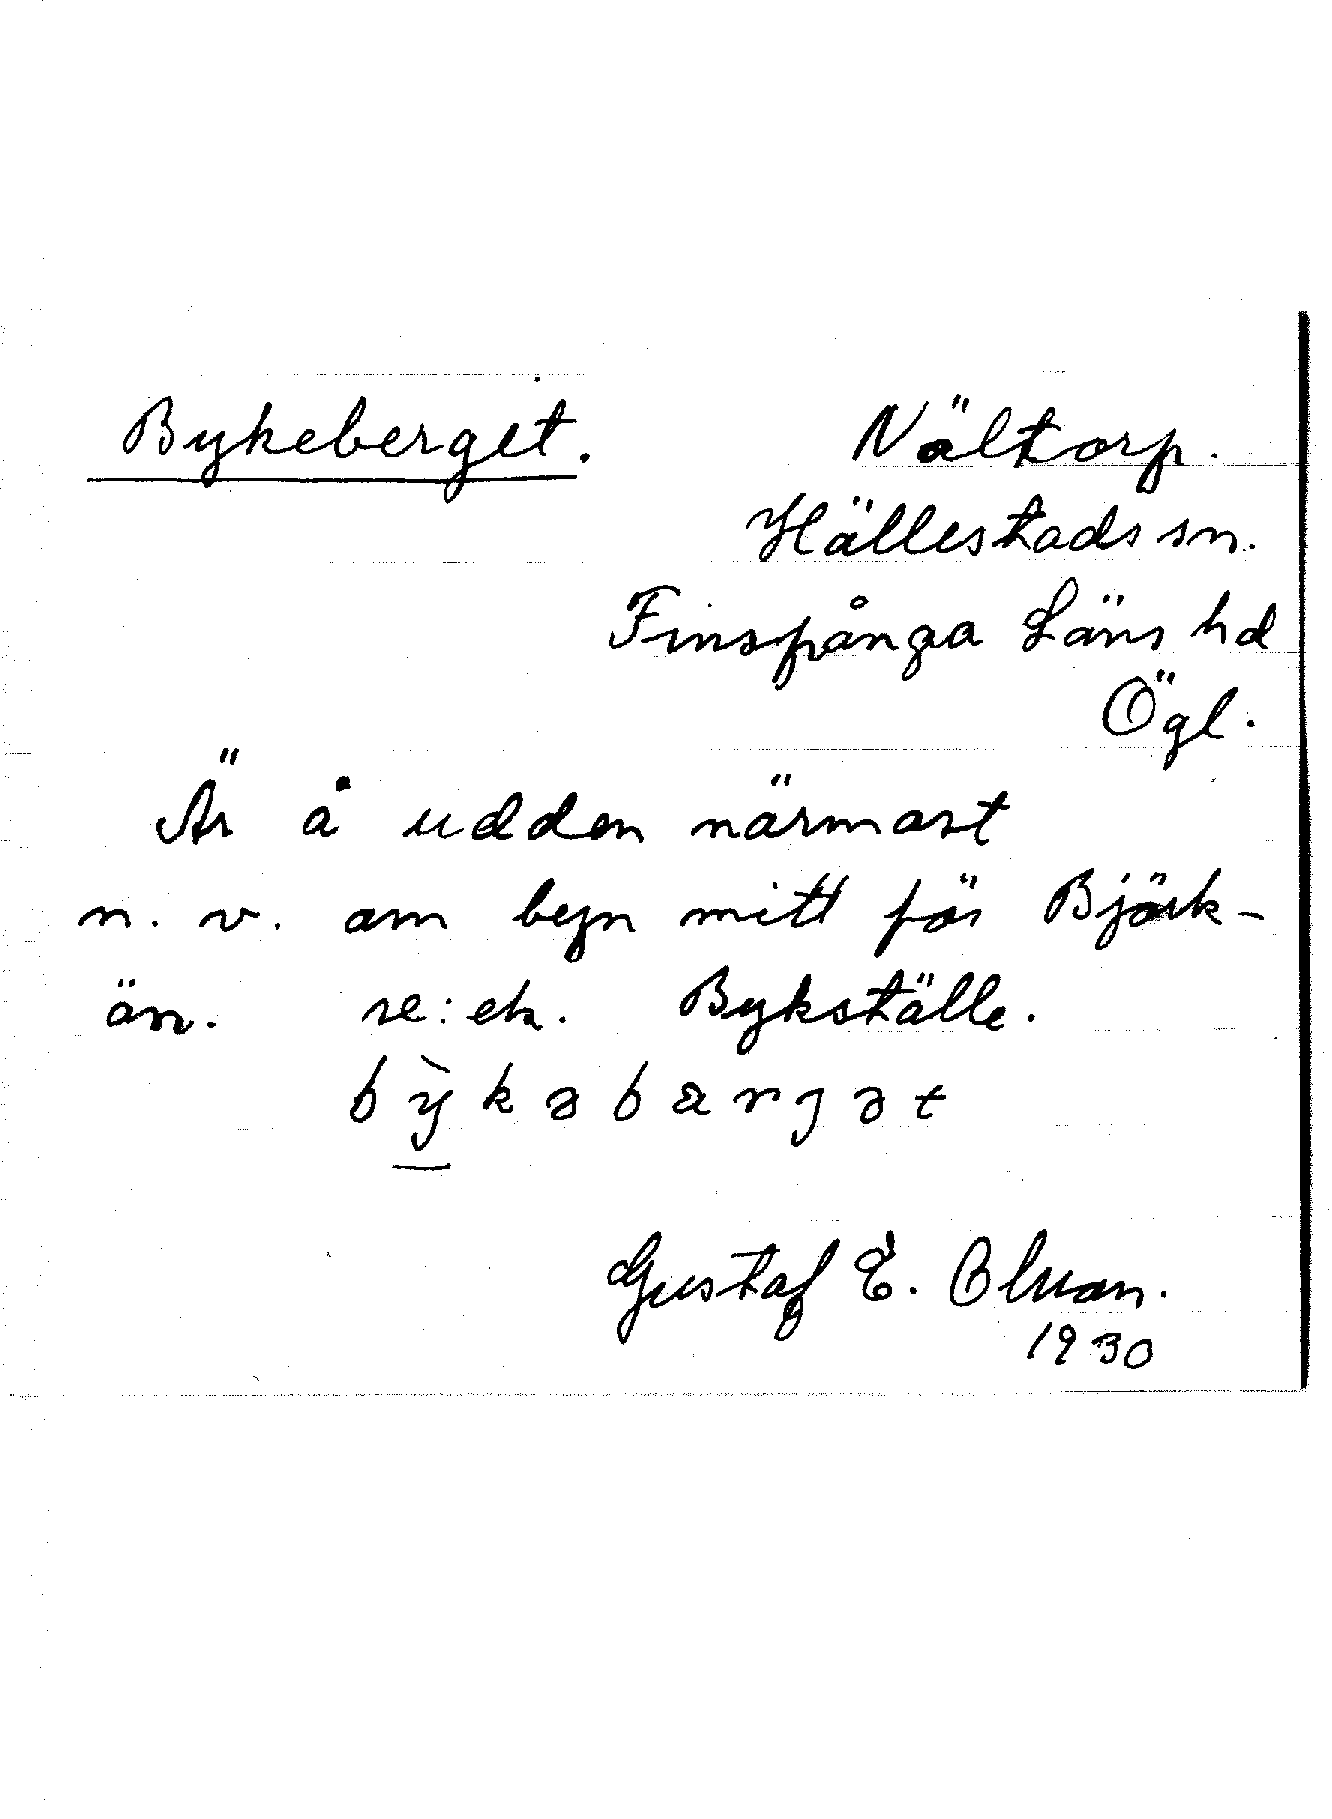 Bykeberget.
Nältorp.
Hällestads sn.
Finspånga Läns hd
Ögl.
Är å udden närmast
n. v. om byn mitt för Björk-
ön. se: ek. Bykställe.
bỳ̱kəbarjət
Gustaf E. Olsson.
1930